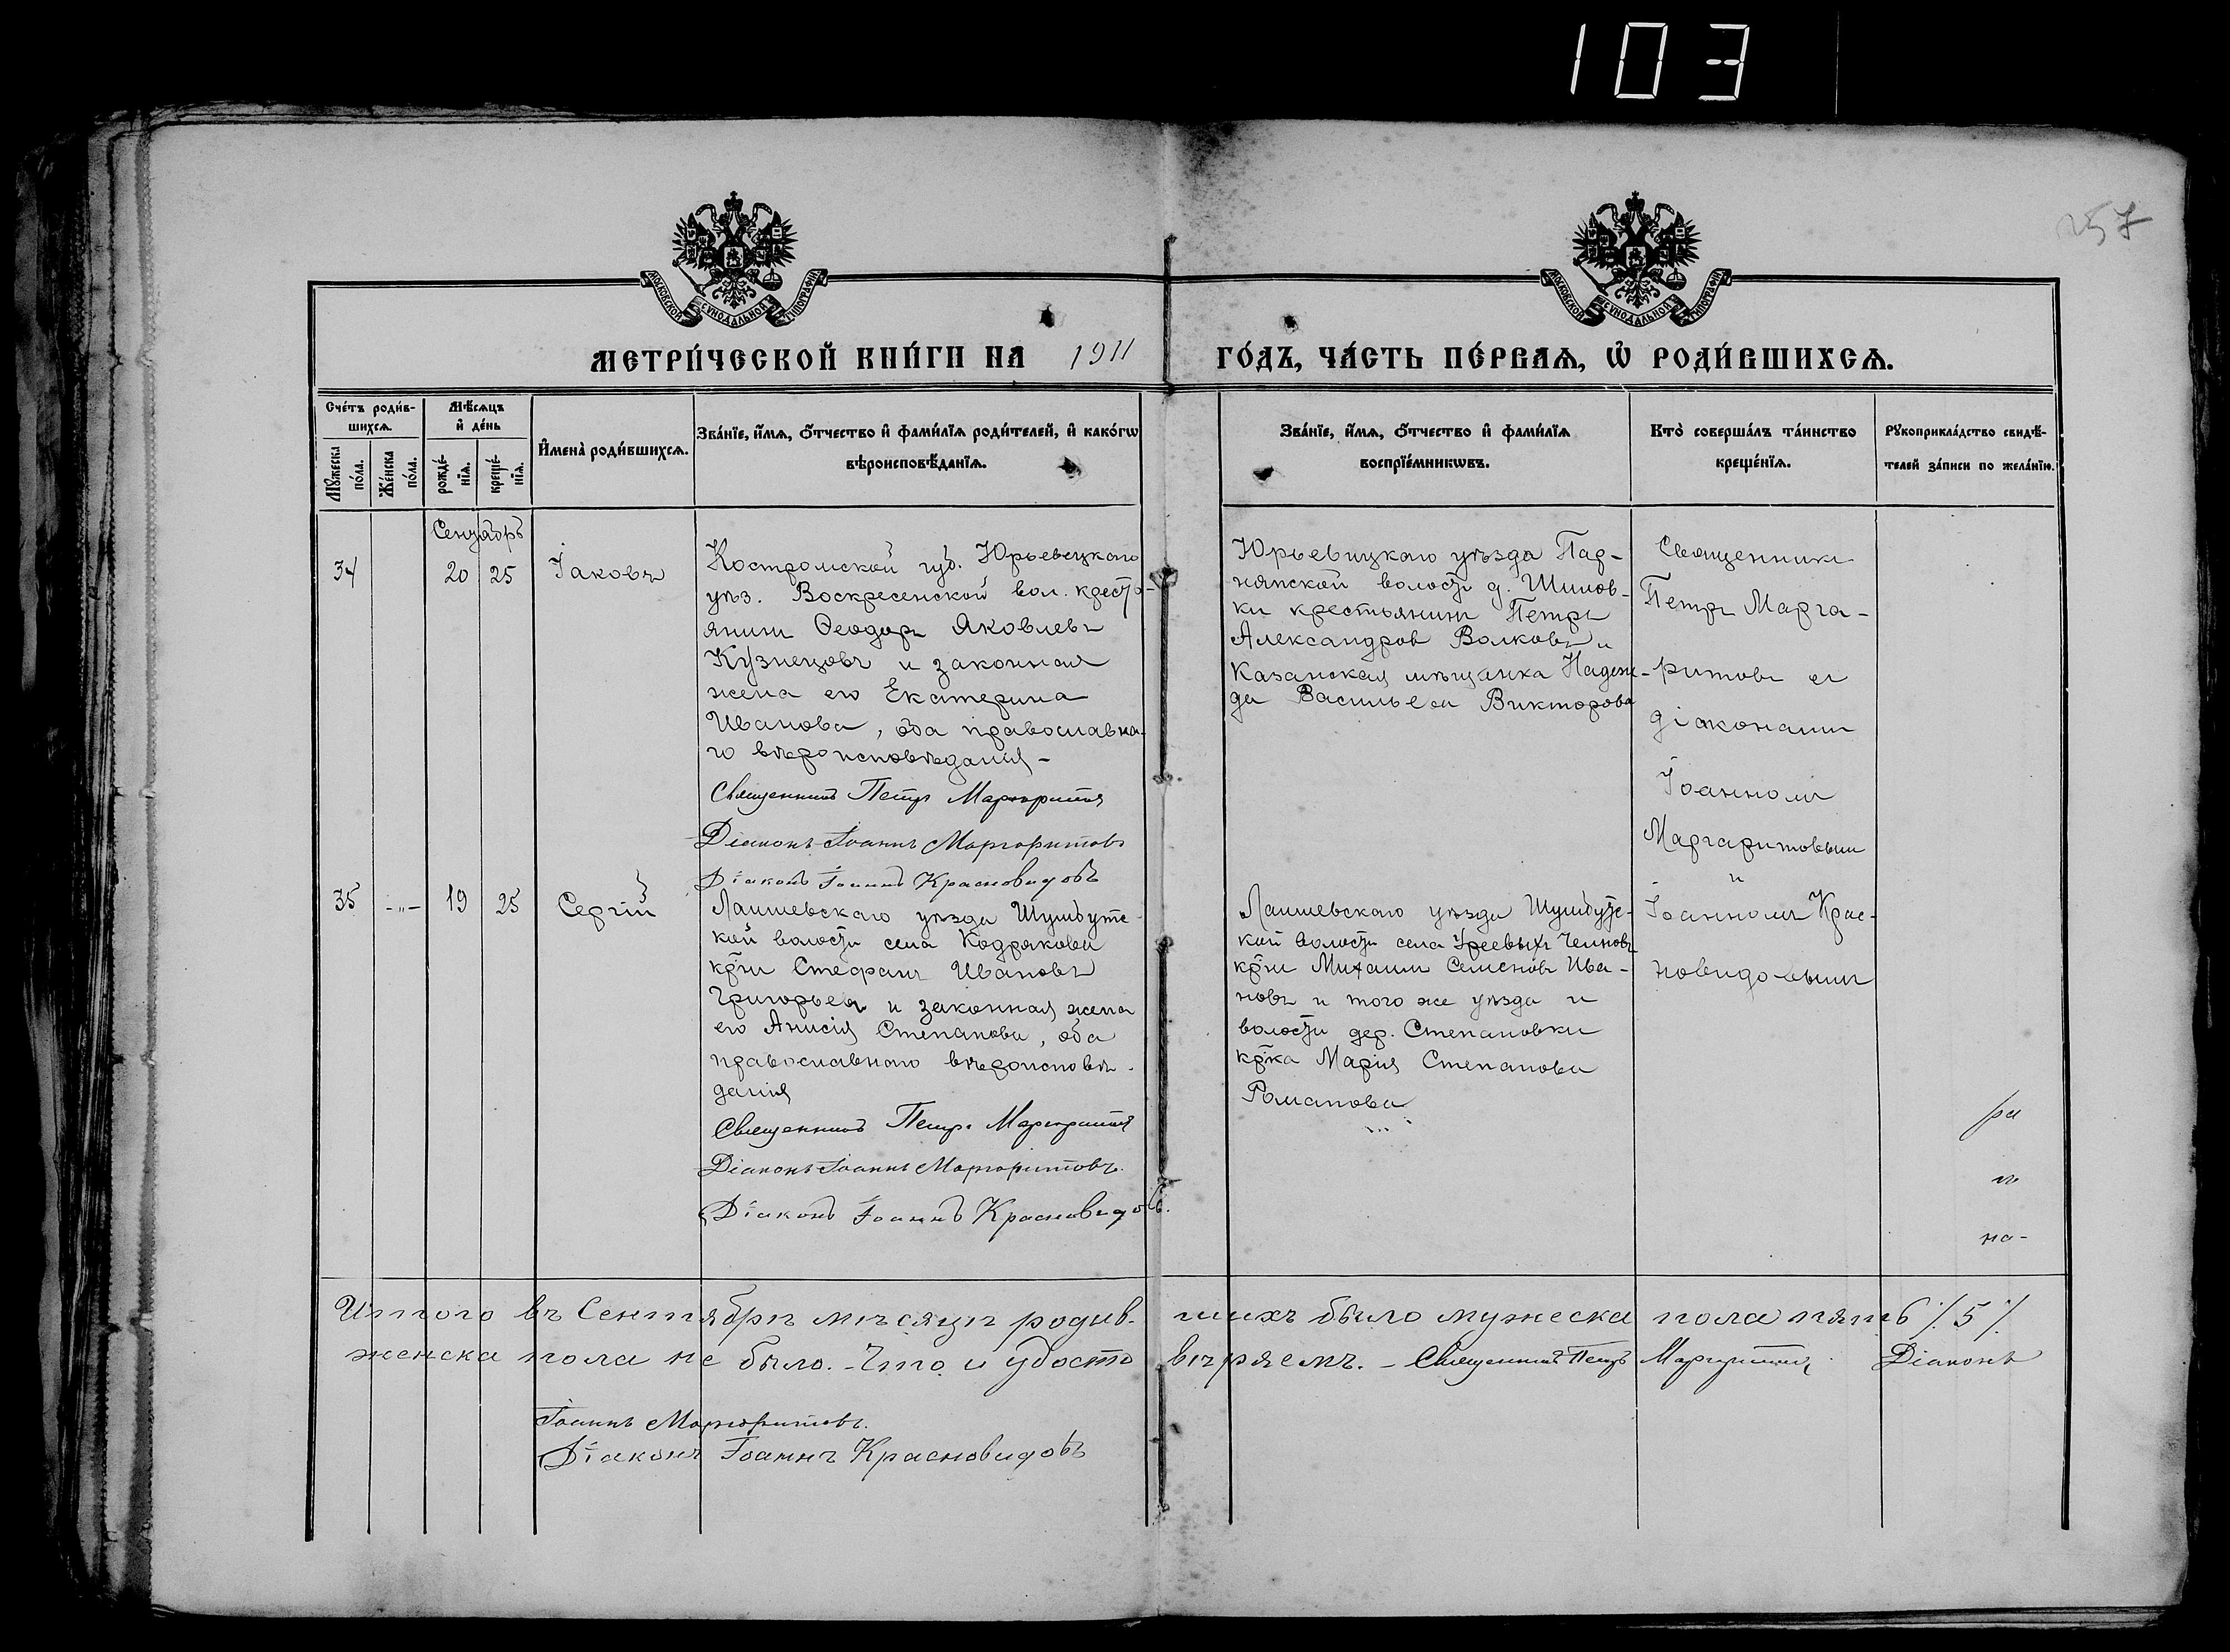 103
257
МОСКОВСКОЙ СУНОДАЛЬНОЙ ТИПОГРАФІИ
МОСКОВСКОЙ СУНОДАЛЬНОЙ ТИПОГРАФІИ
МЕТРИ́ЧЕСКОЙ КНИ́ГИ НА 1911 ГО́ДЪ, ЧА́СТЬ ПЕ́РВАЯ, Ѡ РОДИ́ВШИХСЯ.
Сче́тъ роди́в-
шихся.
Мѣ́сяцъ
и҆ де́нь
Мꙋжеска
по́ла.
Же́нска
по́ла.
рожде́-
нїя.
креще́-
нїя.
И҆мена̀ роди́вшихся.
Зва́нїе, и҆́мя, ѻ҆́тчество и҆ фами́лїя роди́телей, и҆ како́гѡ
вѣроисповѣ́данїя.
Зва́нїе, и҆́мя, ѻ҆́тчество и҆ фами́лїя
воспрїе́мникѡвъ.
Кто̀ соверша́лъ та́инство
креще́нїя.
Рꙋкоприкла́дство свидѣ́-
телей за́писи по жела́нїю.
Сентябрь
34
20
25
Іаковъ
Костромской губ. Юрьевецкаго
уѣз. Воскресенской вол. кресть-
янинъ Ѳеодоръ Яковлевъ
Кузнецовъ и законная
жена его Екатерина
Иванова, оба православна-
го вѣроисповѣданія -
Священникъ Петръ Маргаритовъ
Діаконъ Іоаннъ Маргаритовъ
Діаконъ Іоаннъ Красновидовъ
Юрьевицкаго уѣзда Пар-
нянской волости д. Шилов-
ки крестьянинъ Петръ
Александров Волковъ и
Казанская мѣщанка Надеж-
да Васильева Викторова
Священникъ
Петръ Марга-
ритовъ съ
діаконами
Іоанномъ
Маргаритовымъ
и
Іоанномъ Крас-
новидовымъ
35
-"-
19
25
Сергій
Лаишевскаго уѣзда Шумбутс-
кой волости села Кодрякова
кр̃нъ Стефанъ Ивановъ
Григорьевъ и законная жена
его Анисія Степанова, оба
православнаго вѣроисповѣ-
данія
Священникъ Петръ Маргаритовъ
Діаконъ Іоаннъ Маргаритовъ.
Діаконъ Іоаннъ Красновидовъ.
Лаишевскаго уѣзда Шумбутс-
кой волости села Уреевыхъ Челновъ
кр̃нъ Михаилъ Семеновъ Ива-
новъ и того же уѣзда и
волости дер. Степановки
кр̃ка Марія Степанова
Романова
ра
на-
Итого въ Сентябрѣ мѣсяцѣ родив-шихъ было мужеска пола пять /5/
женска пола не было. - Что и удостовѣряемъ. - Священникъ Петръ Маргаритовъ. Діаконъ
Іоаннъ Маргаритовъ.
Діаконъ Іоаннъ Красновидовъ